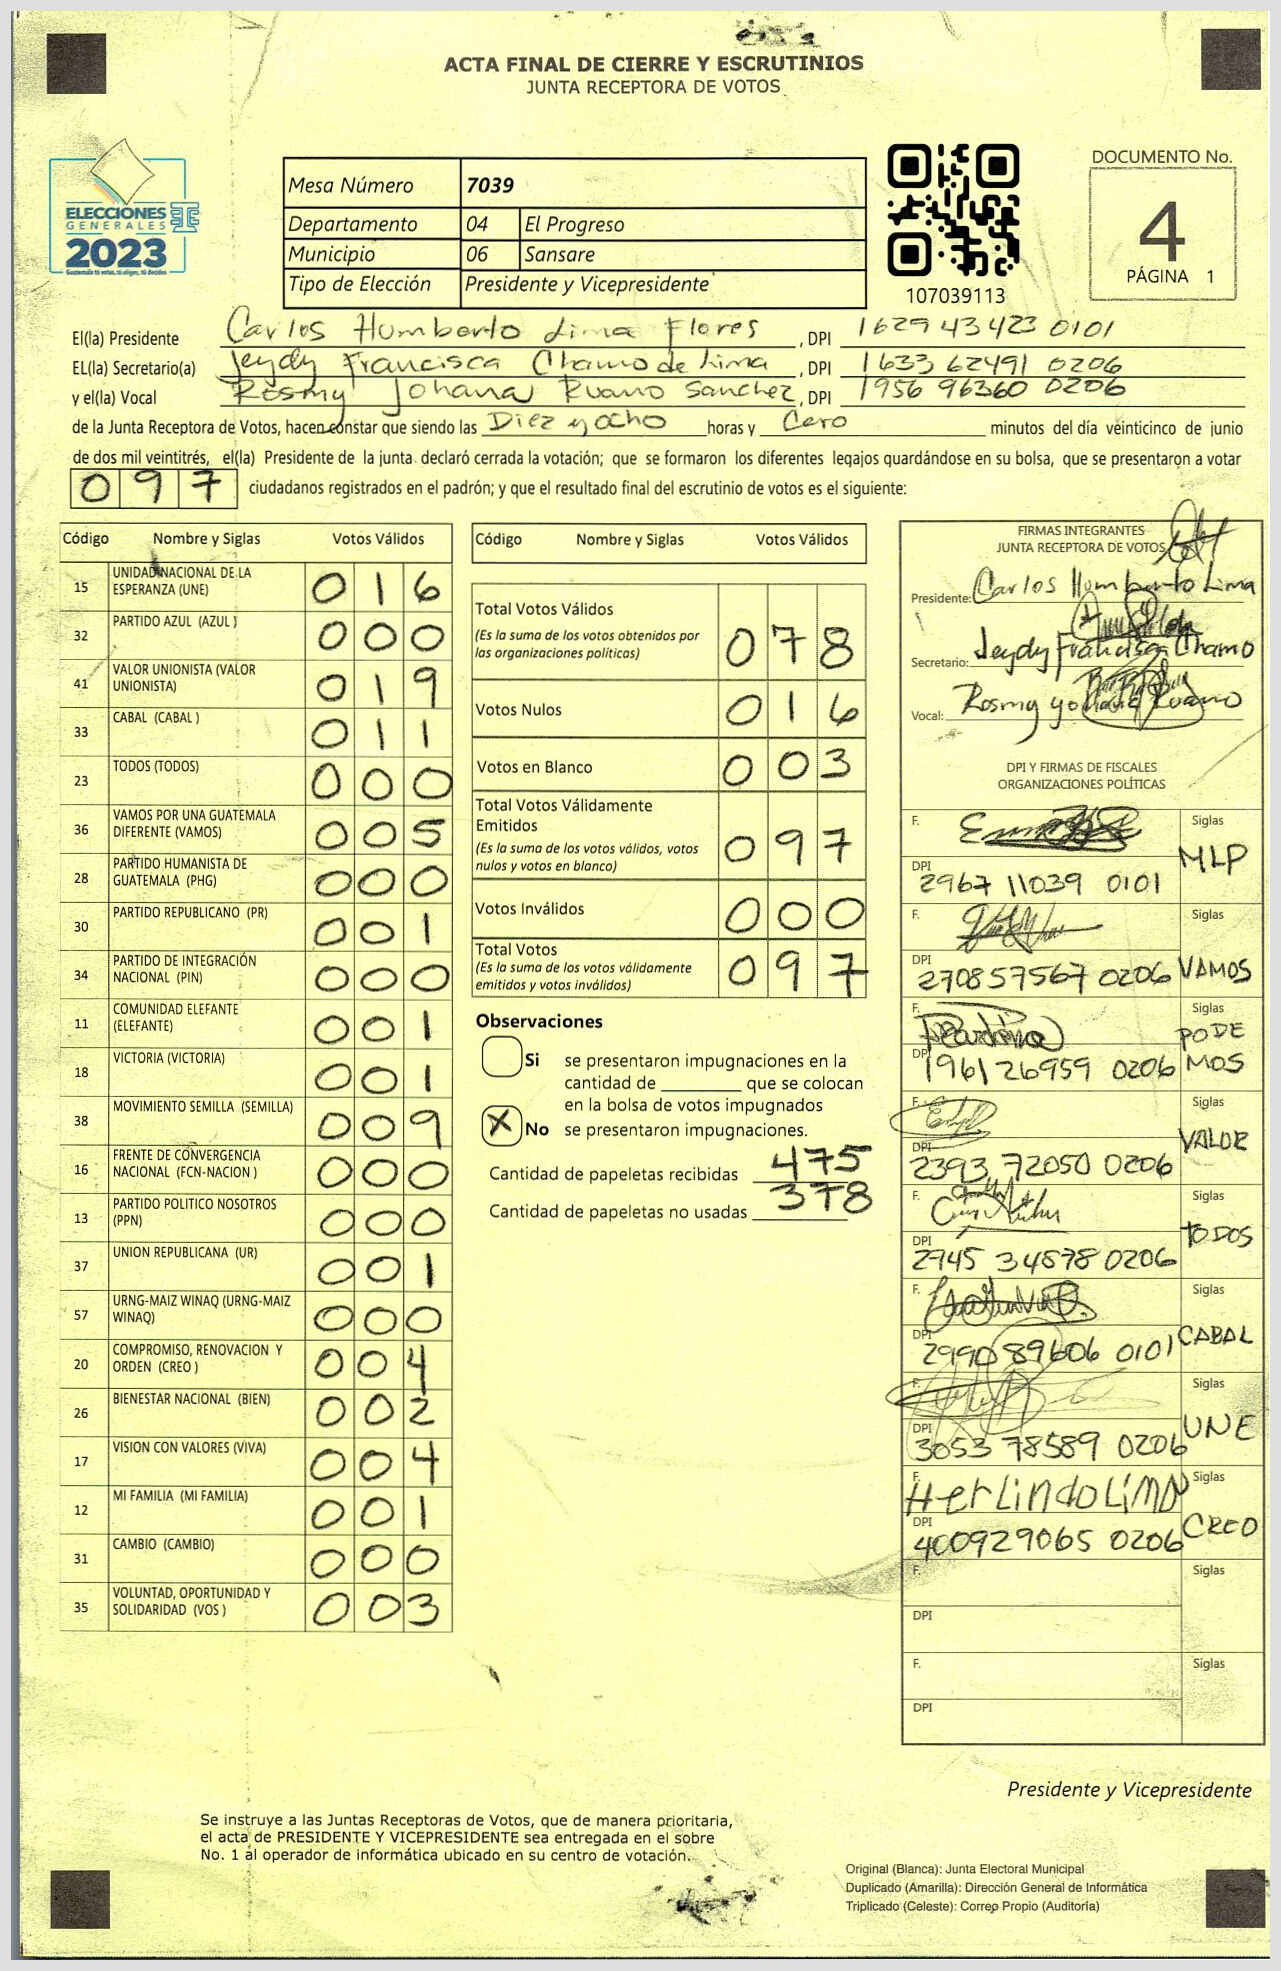 ACTA FINAL DE CIERRE Y ESCRUTINIOS
JUNTA RECEPTORA DE VOTOS
ELECCIONES
GENERALES
2023
Guatemala tú votas, tú eliges, tú decides
Mesa Número 7039
Departamento 04 El Progreso
Municipio 06 Sansare
Tipo de Elección Presidente y Vicepresidente
107039113
DOCUMENTO No.
4
PÁGINA 1
El(la) Presidente Carlos Humberto Lima Flores, DPI 1629 43423 0101
EL(la) Secretario(a) Jeydy Francisca Chamo de Lima, DPI 1633 62491 0206
y el(la) Vocal Rosmy Johana Ruano Sanchez, DPI 1956 96360 0206
de la Junta Receptora de Votos, hacen constar que siendo las Diez y ocho horas y Cero minutos del día veinticinco de junio
de dos mil veintitrés, el(la) Presidente de la junta declaró cerrada la votación; que se formaron los diferentes legajos quardándose en su bolsa, que se presentaron a votar
097 ciudadanos registrados en el padrón; y que el resultado final del escrutinio de votos es el siguiente:
Código Nombre y Siglas Votos Válidos
15 UNIDAD NACIONAL DE LA ESPERANZA (UNE) 016
32 PARTIDO AZUL (AZUL ) 000
41 VALOR UNIONISTA (VALOR UNIONISTA) 019
33 CABAL (CABAL ) 011
23 TODOS (TODOS) 000
36 VAMOS POR UNA GUATEMALA DIFERENTE (VAMOS) 005
28 PARTIDO HUMANISTA DE GUATEMALA (PHG) 000
30 PARTIDO REPUBLICANO (PR) 001
34 PARTIDO DE INTEGRACIÓN NACIONAL (PIN) 000
11 COMUNIDAD ELEFANTE (ELEFANTE) 001
18 VICTORIA (VICTORIA) 001
38 MOVIMIENTO SEMILLA (SEMILLA) 009
16 FRENTE DE CONVERGENCIA NACIONAL (FCN-NACION ) 000
13 PARTIDO POLITICO NOSOTROS (PPN) 000
37 UNION REPUBLICANA (UR) 001
57 URNG-MAIZ WINAQ (URNG-MAIZ WINAQ) 000
20 COMPROMISO, RENOVACION Y ORDEN (CREO ) 004
26 BIENESTAR NACIONAL (BIEN) 002
17 VISION CON VALORES (VIVA) 004
12 MI FAMILIA (MI FAMILIA) 001
31 CAMBIO (CAMBIO) 000
35 VOLUNTAD, OPORTUNIDAD Y SOLIDARIDAD (VOS ) 003
Código Nombre y Siglas Votos Válidos
Total Votos Válidos 078
(Es la suma de los votos obtenidos por
las organizaciones políticas)
Votos Nulos 016
Votos en Blanco 003
Total Votos Válidamente
Emitidos 097
(Es la suma de los votos válidos, votos
nulos y votos en blanco)
Votos Inválidos 000
Total Votos 097
(Es la suma de los votos válidamente
emitidos y votos inválidos)
Observaciones
Si se presentaron impugnaciones en la
cantidad de ________ que se colocan
en la bolsa de votos impugnados
X No se presentaron impugnaciones.
Cantidad de papeletas recibidas 475
Cantidad de papeletas no usadas 378
FIRMAS INTEGRANTES
JUNTA RECEPTORA DE VOTOS
Presidente: Carlos Humberto Lima
Secretario: Jeydy Francisca Chamo
Vocal: Rosmy Yohana Ruano
DPI Y FIRMAS DE FISCALES
ORGANIZACIONES POLÍTICAS
F. Siglas MLP
DPI 2967 11039 0101
F. Siglas VAMOS
DPI 270857567 0206
F. Siglas PODEMOS
DPI 196126959 0206
F. Siglas VALOR
DPI 2393 72050 0206
F. Siglas TODOS
DPI 2945 34878 0206
F. Siglas CABAL
DPI 2990 89606 0101
F. Siglas UNE
DPI 3053 78589 0206
F. Herlindo Lima Siglas CREO
DPI 400929065 0206
F. Siglas
DPI
F. Siglas
DPI
Presidente y Vicepresidente
Se instruye a las Juntas Receptoras de Votos, que de manera prioritaria,
el acta de PRESIDENTE Y VICEPRESIDENTE sea entregada en el sobre
No. 1 al operador de informática ubicado en su centro de votación.
Original (Blanca): Junta Electoral Municipal
Duplicado (Amarilla): Dirección General de Informática
Triplicado (Celeste): Correo Propio (Auditoría)